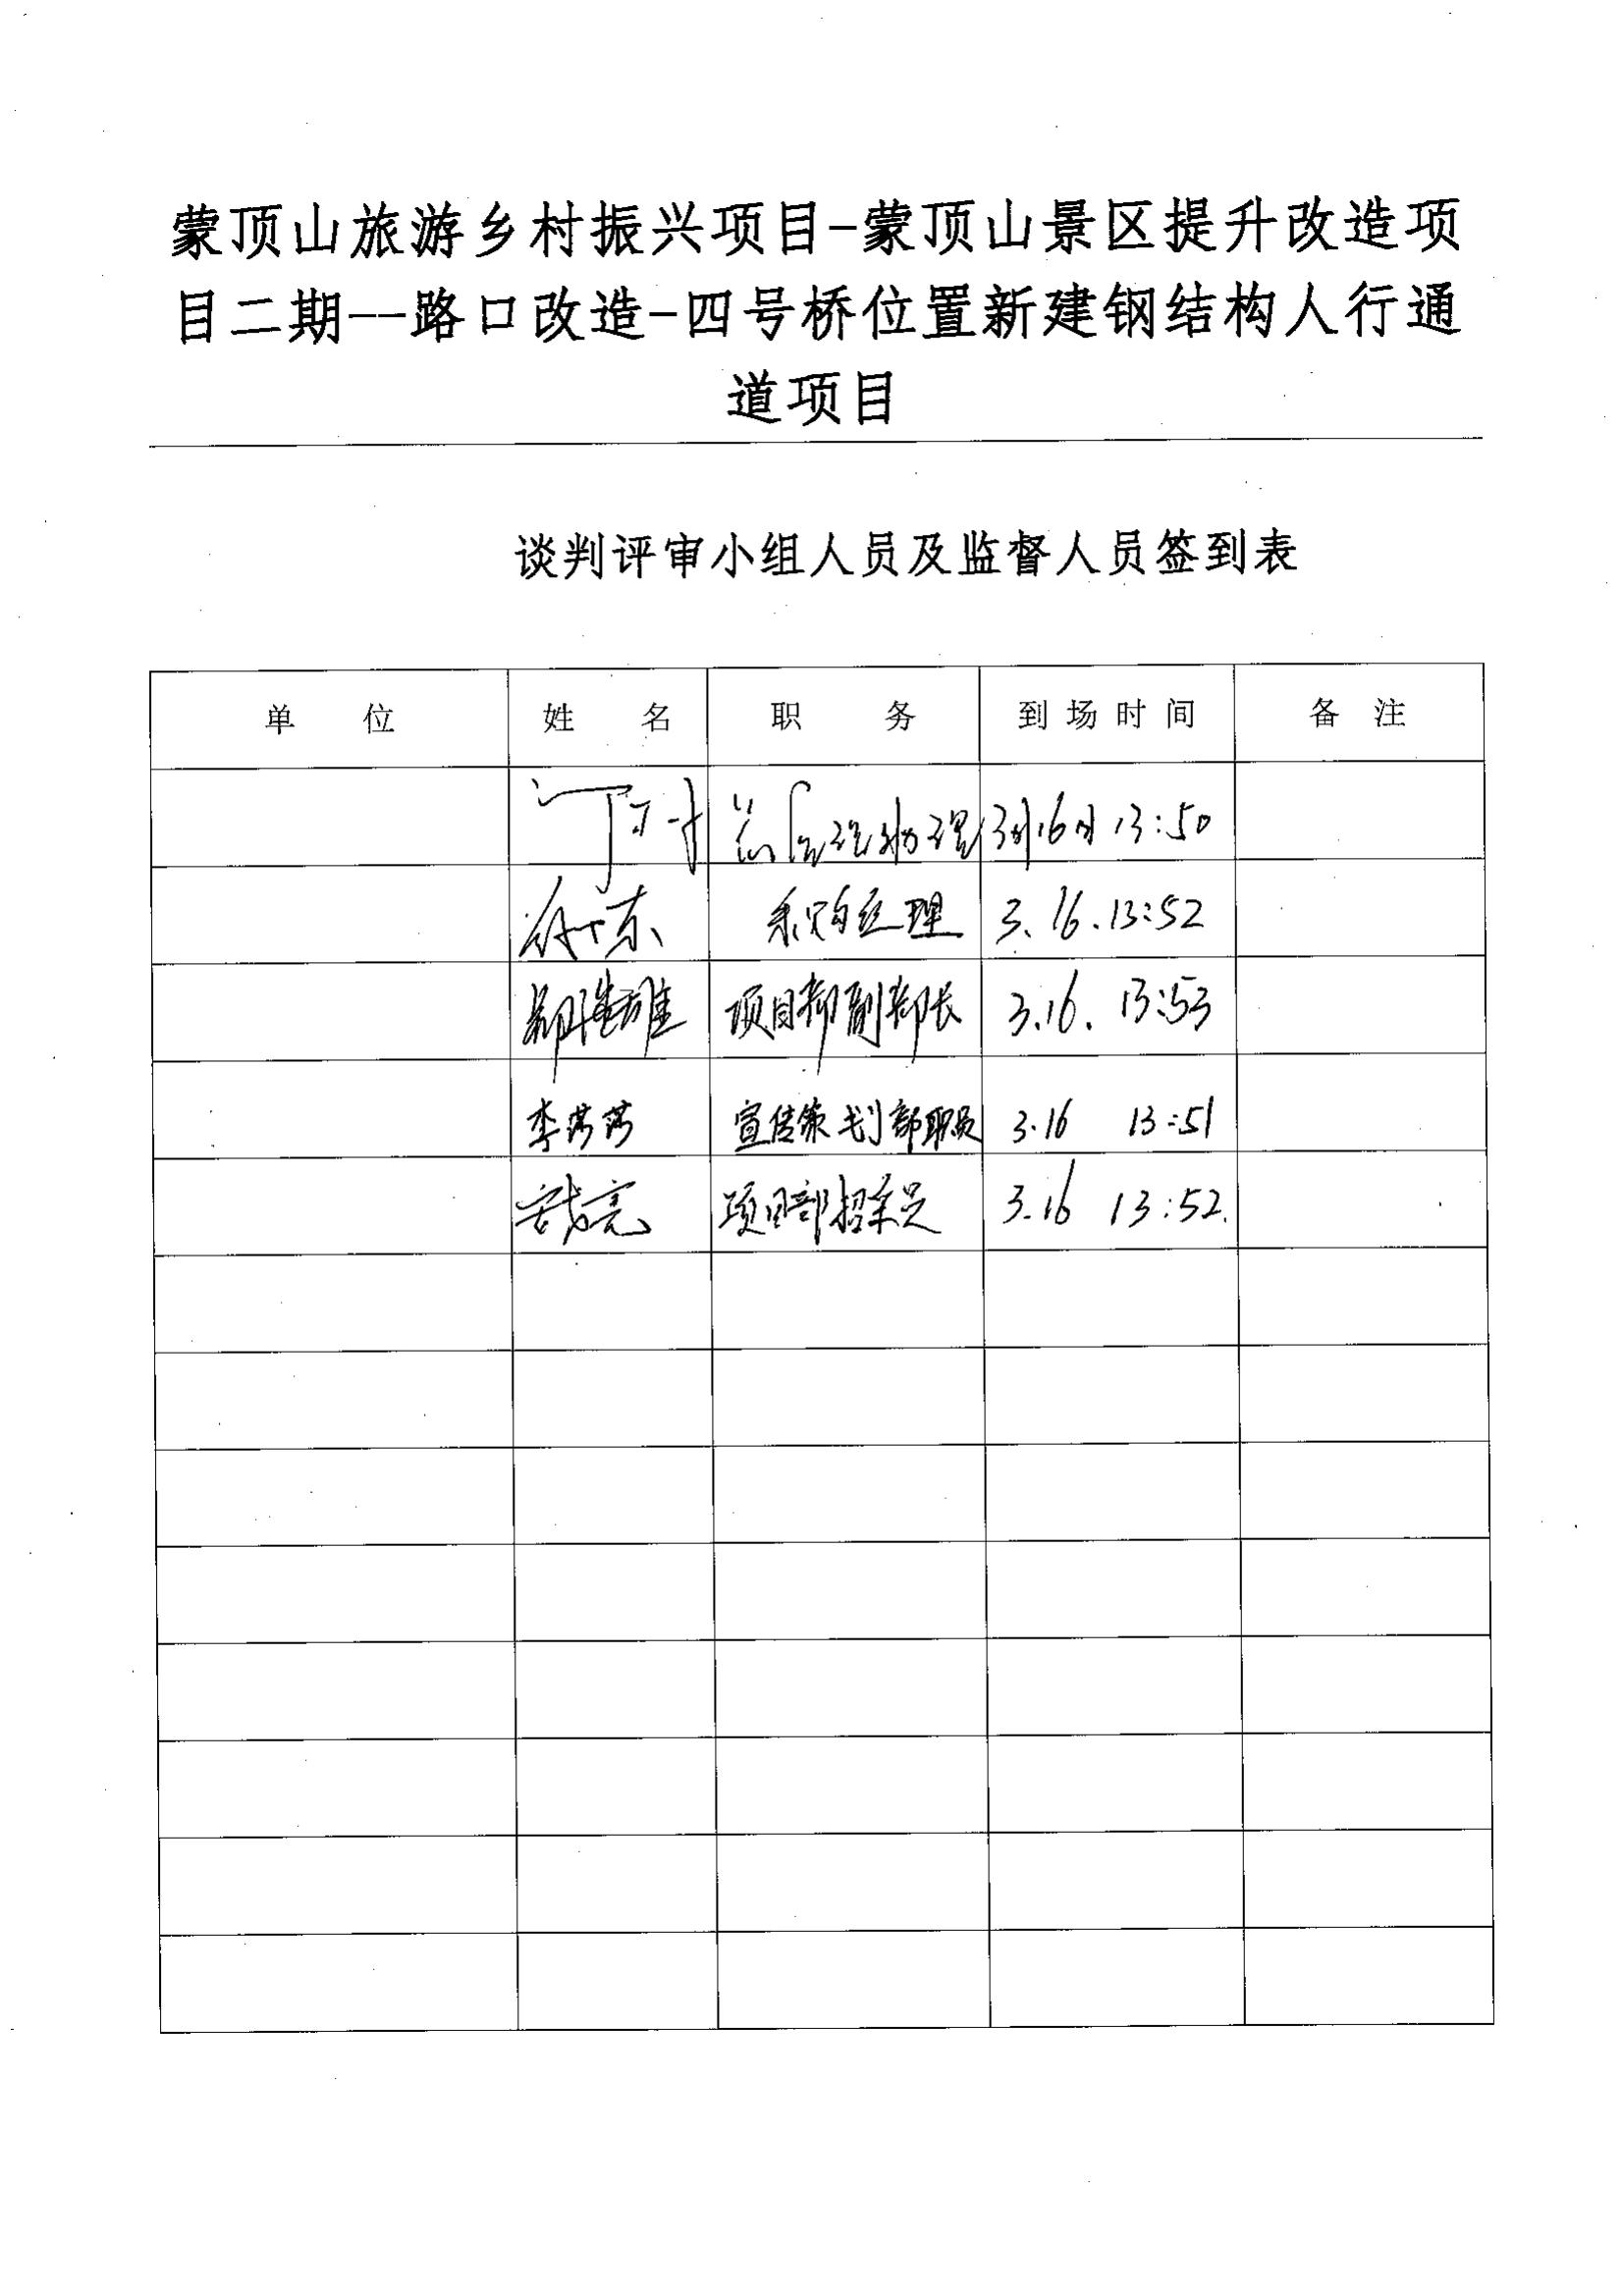 蒙顶山旅游乡村振兴项目-蒙顶山景区提升改造项
目二期--路口改造-四号桥位置新建钢结构人行通
道项目
谈判评审小组人员及监督人员签到表
单 位 姓 名 职 务 到场时间 备 注
总经理助理 3月16日 13:50
采购经理 3.16.13:52
项目部副部长 3.16. 13:53
李莎莎 宣传策划部职员 3.16 13:51
项目部招采员 3.16 13:52.